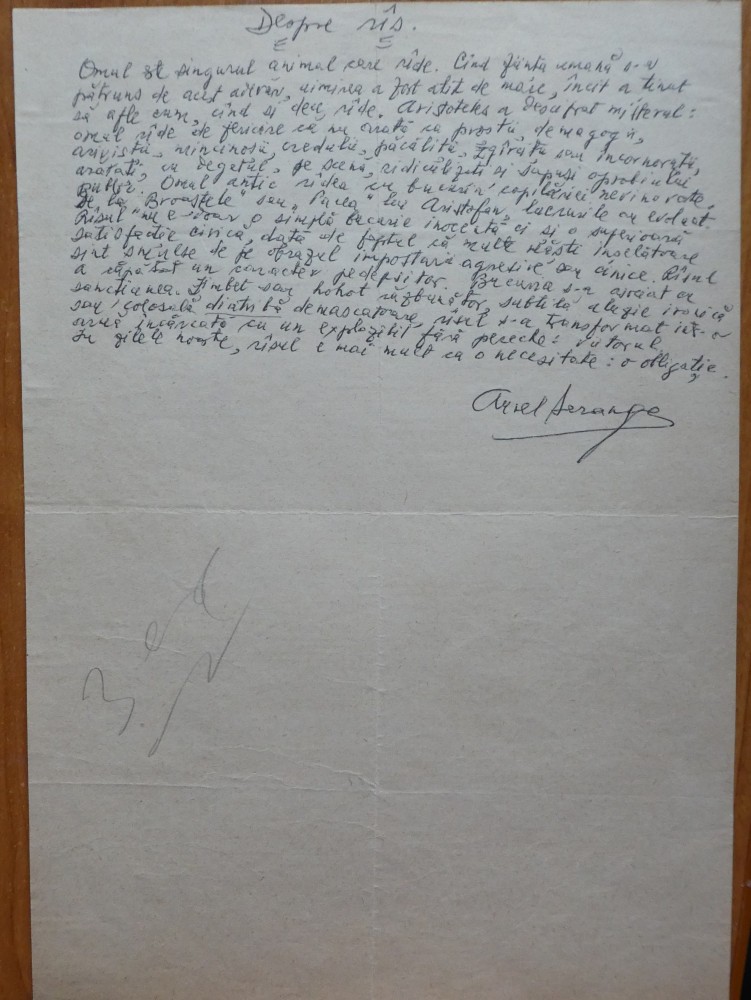 Despre rîs.
Omul este singurul animal care rîde. Cînd ființa umană s-a
pătruns de acest adevăr, uimirea a fost atît de mare, încît a ținut
să afle cum, cînd și deci, rîde. Aristoteles a descifrat misterul:
omul rîde de fericire că nu arată ca proștii, demagogii,
arivistii, mincinoșii, credulii, păcăliții, zgîrciții sau încornorații,
arătați, cu degetul, pe scenă, ridiculizați și supuși oprobiului
public. Omul antic rîdea cu bucurii copilărești nevinovate,
De la "Broaștele" sau "Pacea" lui Aristofan, lucrurile au evoluat.
Rîsul nu e doar o simplă bucurie inocentă ci și o superioară
satisfacție civică, dată de faptul că multe măști înșelătoare
sînt smulse de pe obrazul imposturii agresive sau cinice. Rîsul
a căpătat un caracter pedepsitor. Bucuria s-a asociat cu
sancțiunea. Zîmbet sau hohot răzbunător, subtilă aluzie ironică
sau colosală diatribă demascatoare, rîsul s-a transformat într-o
armă încărcată cu un explozibil fără pereche: viitorul.
In zilele noastre, rîsul e mai mult ca o necesitate: o obligație.